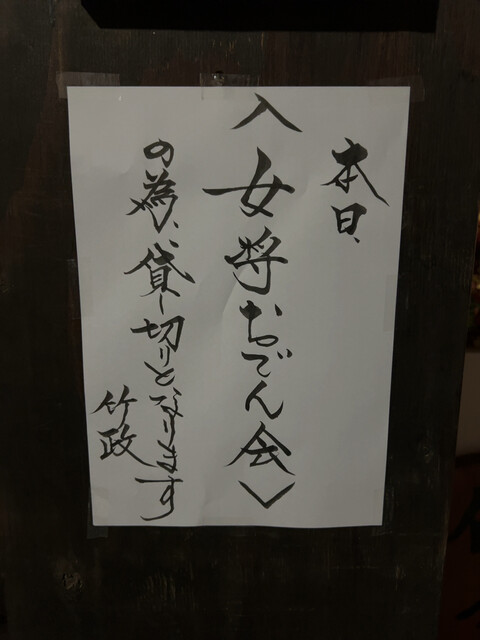 本日、
〈女将おでん会〉
の為、貸し切りとなります
竹政